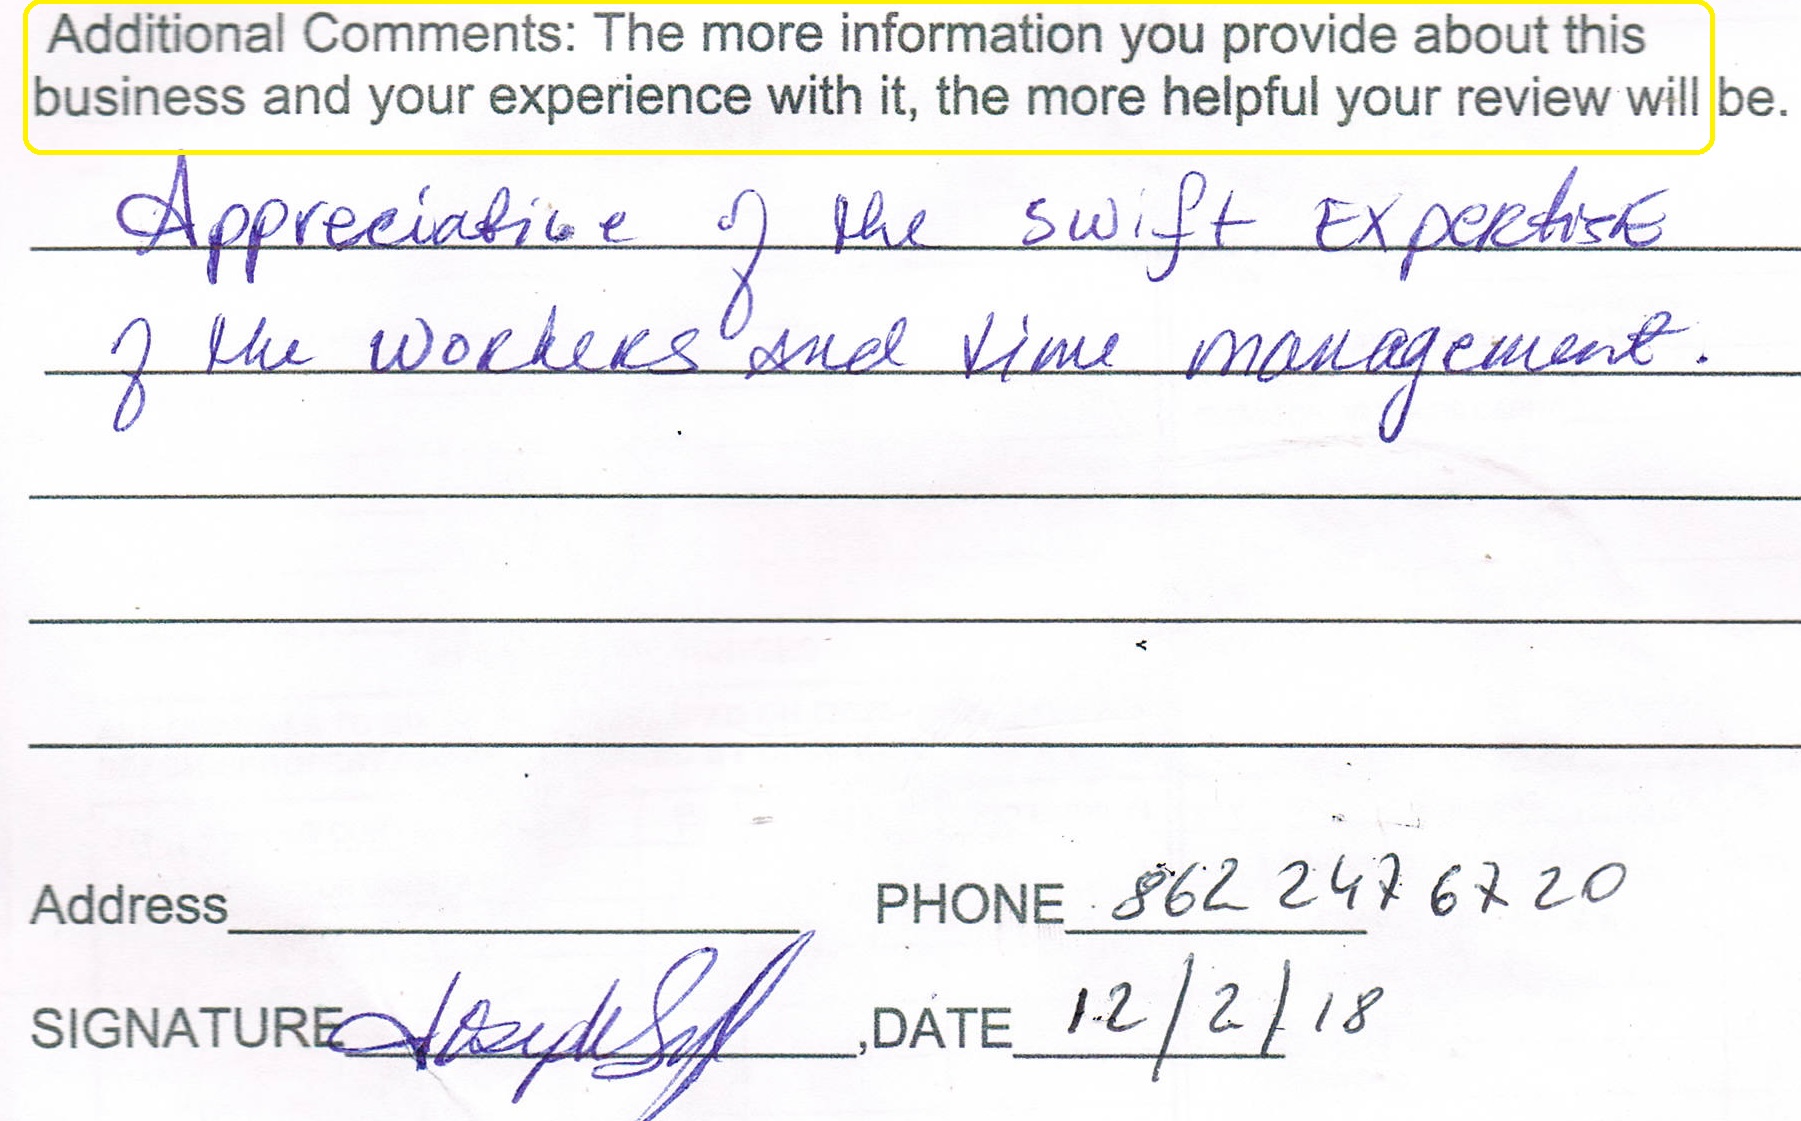 Additional Comments: The more information you provide about this
business and your experience with it, the more helpful your review will be.
Appreciative of the swift Expertise
of the workers and time management.
Address PHONE 862 247 6720
SIGNATURE Joseph ,DATE 12/2/18